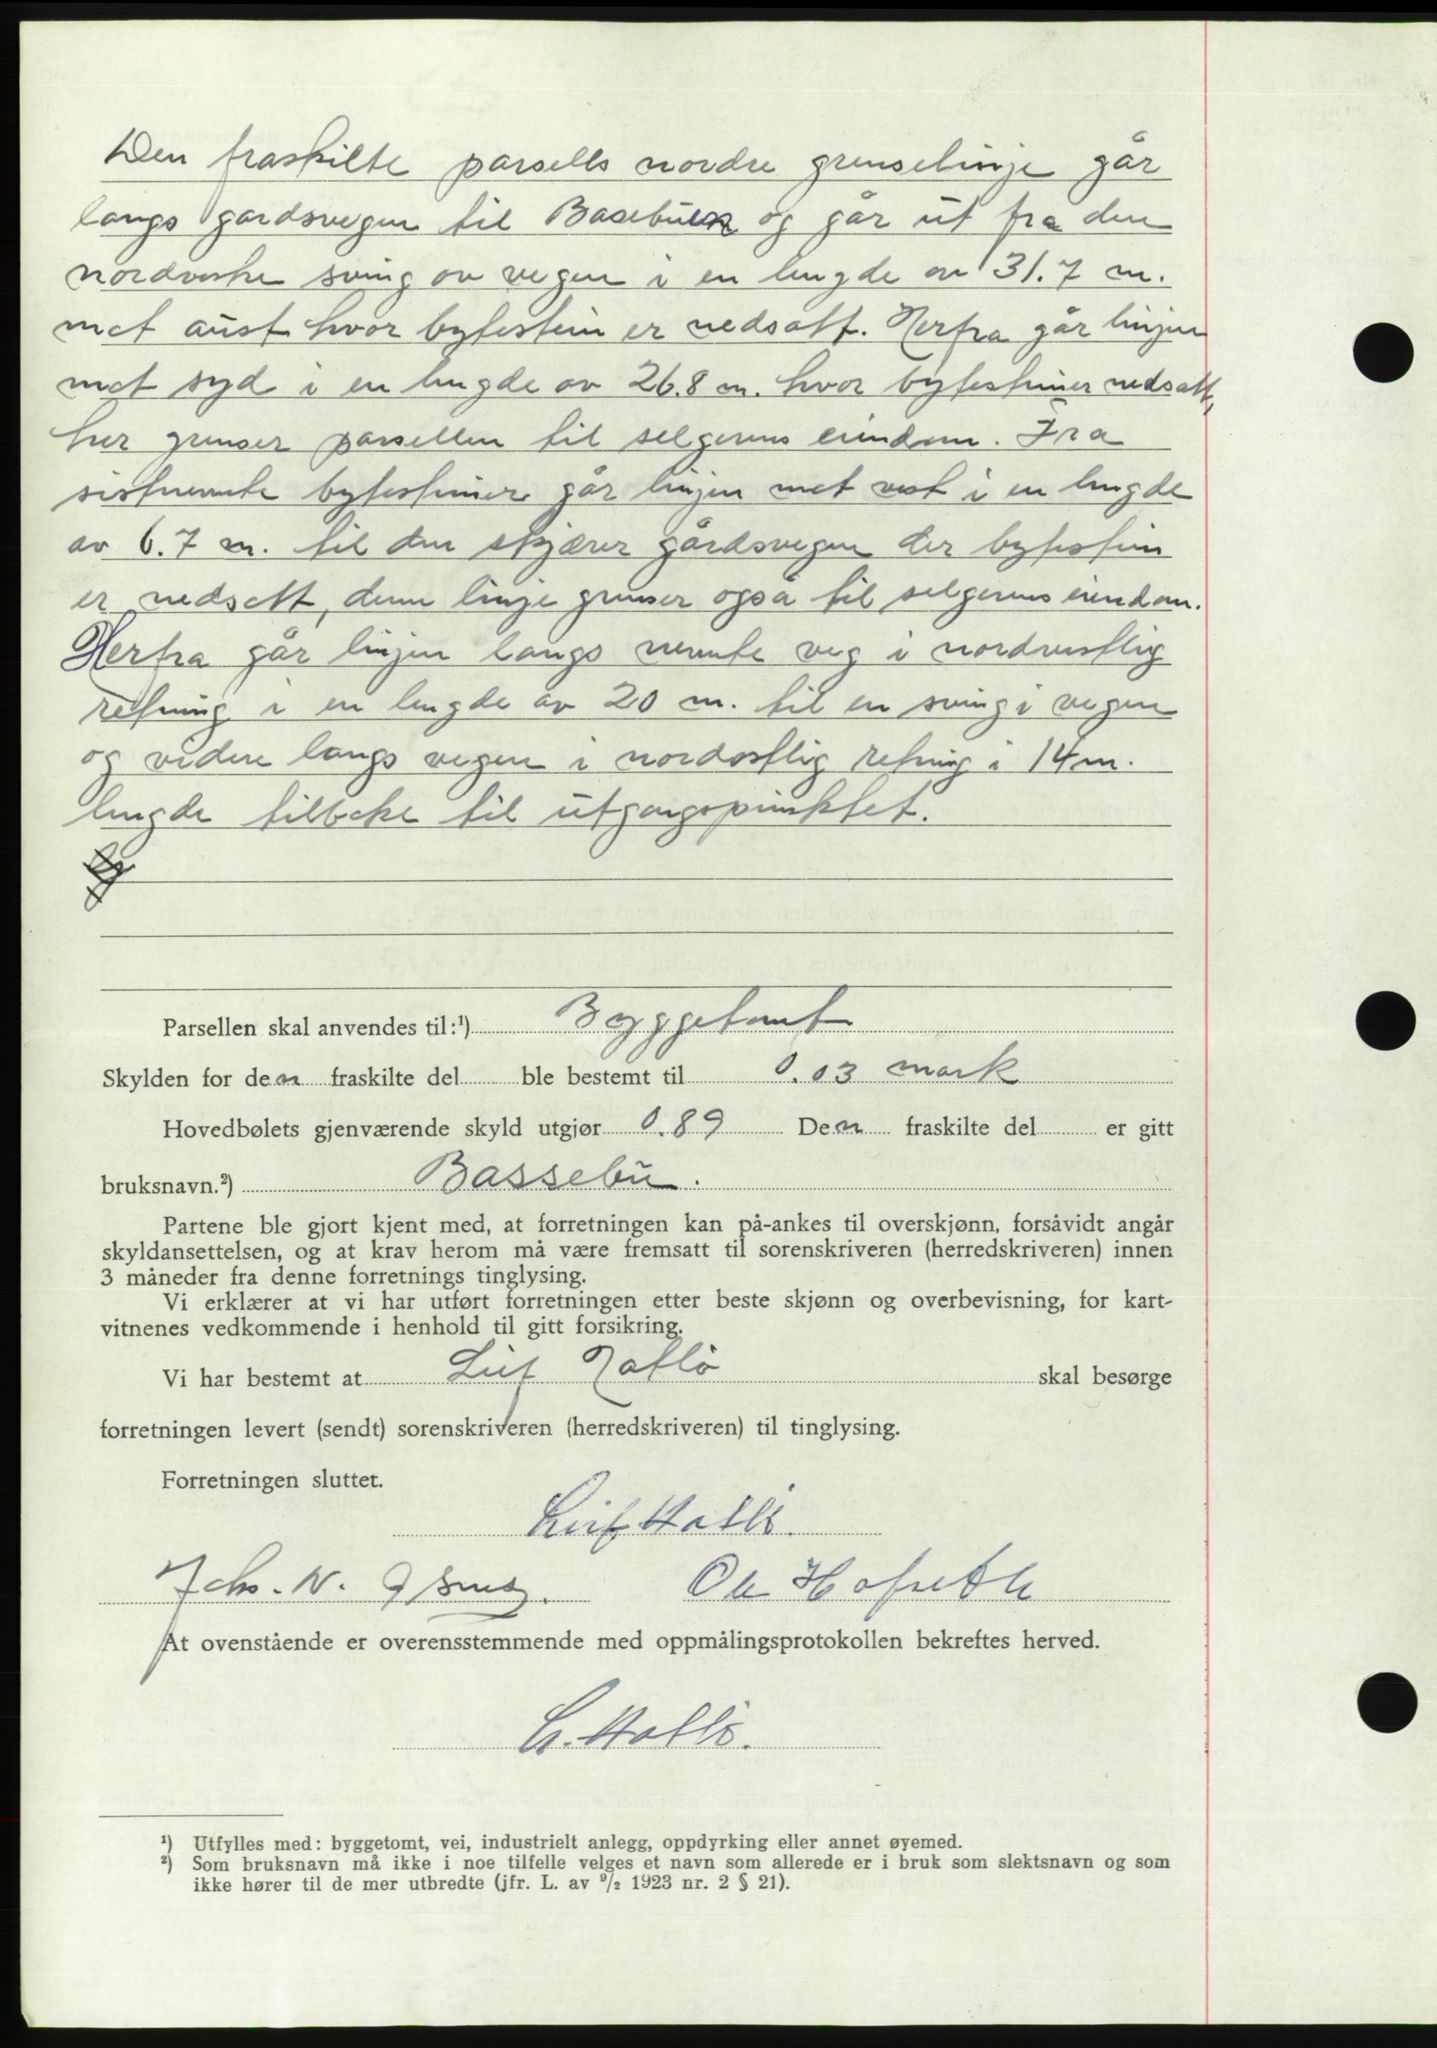 Den fraskilte parsells nordre grenselinje går
langs gardsvegen til Basebuen og går ut fra den
nordveste sving av vegen i en lengde av 31.7 m.
mot aust hvor bytestein er nedsatt. Herfra går linjen
mot syd i en lengde av 26.8 m. hvor bytestein er nedsatt,
her grenser parsellen til selgerens eiendom. Fra
sistnevnte bytestein går linjen mot vest i en lengde
av 6.7 m. til den skjærer gårdsvegen der bytestein
er nedsatt, denne linje grenser også til selgerens eiendom.
Herfra går linjen langs nevnte veg i nordvestlig
retning i en lengde av 20 m. til en sving i vegen
og videre langs vegen i nordostlig retning i 14 m.
lengde tilbake til utgangspunktet.
Parsellen skal anvendes til:¹) Byggetomt
Skylden for den fraskilte del ble bestemt til 0.03 mark
Hovedbølets gjenværende skyld utgjør 0.89 Den fraskilte del er gitt
bruksnavn.²) Bassebu.
Partene ble gjort kjent med, at forretningen kan på-ankes til overskjønn, forsåvidt angår
skyldansettelsen, og at krav herom må være fremsatt til sorenskriveren (herredskriveren) innen
3 måneder fra denne forretnings tinglysing.
Vi erklærer at vi har utført forretningen etter beste skjønn og overbevisning, for kart-
vitnenes vedkommende i henhold til gitt forsikring.
Vi har bestemt at Leif Hatlø skal besørge
forretningen levert (sendt) sorenskriveren (herredskriveren) til tinglysing.
Forretningen sluttet.
Leif Hatlø.
Johs. N. Ole Hofseth
At ovenstående er overensstemmende med oppmålingsprotokollen bekreftes herved.
L. Hatlø.
¹) Utfylles med: byggetomt, vei, industrielt anlegg, oppdyrking eller annet øyemed.
²) Som bruksnavn må ikke i noe tilfelle velges et navn som allerede er i bruk som slektsnavn og som
ikke hører til de mer utbredte (jfr. L. av 9/2 1923 nr. 2 § 21).